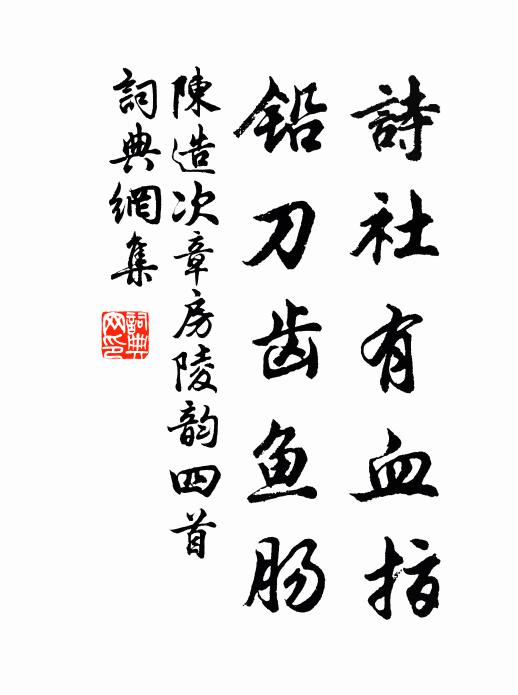 詩社有血指
铅刀齿鱼肠
陳造次章房陵韵四首
詞典網集
詞典网印